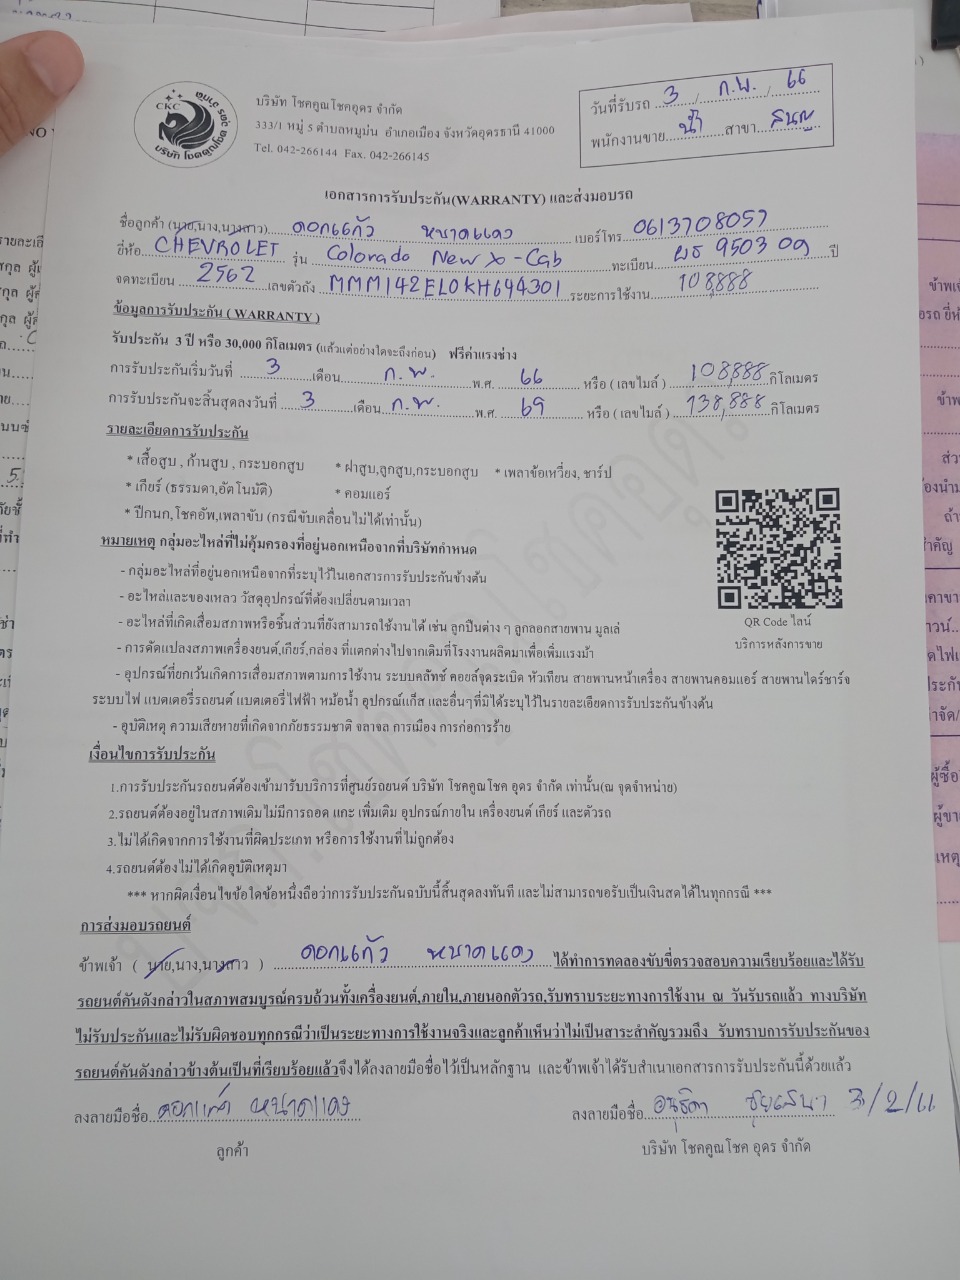 CKC
บริษัท โชคคูณโชคอุดร จำกัด
333/1 หมู่ 5 ตำบลหมูม่น อำเภอเมือง จังหวัดอุดรธานี 41000
Tel. 042-266144 Fax. 042-266145
วันที่รับรถ 3 / ก.พ. / 66
พนักงานขาย น้ำ สาขา
เอกสารการรับประกัน(WARRANTY) และส่งมอบรถ
ชื่อลูกค้า (นาย,นาง,นางสาว) ดอกแก้ว หนาดแดง เบอร์โทร 0613708057
ยี่ห้อ CHEVROLET รุ่น Colorado New X-Cab ทะเบียน ผธ 9503 อด ปี
จดทะเบียน 2562 เลขตัวถัง MMM142EL0KH644301 ระยะการใช้งาน 108,888
ข้อมูลการรับประกัน ( WARRANTY )
รับประกัน 3 ปี หรือ 30,000 กิโลเมตร (แล้วแต่อย่างใดจะถึงก่อน) ฟรีค่าแรงช่าง
การรับประกันเริ่มวันที่ 3 เดือน ก.พ. พ.ศ. 66 หรือ ( เลขไมล์ ) 108,888 กิโลเมตร
การรับประกันจะสิ้นสุดลงวันที่ 3 เดือน ก.พ. พ.ศ. 69 หรือ ( เลขไมล์ ) 138,888 กิโลเมตร
รายละเอียดการรับประกัน
* เสื้อสูบ , ก้านสูบ , กระบอกสูบ * ฝาสูบ,ลูกสูบ,กระบอกสูบ * เพลาข้อเหวี่ยง, ชาร์ป
* เกียร์ (ธรรมดา,อัตโนมัติ) * คอมแอร์
* ปีกนก,โชคอัพ,เพลาขับ (กรณีขับเคลื่อนไม่ได้เท่านั้น)
หมายเหตุ กลุ่มอะไหล่ที่ไม่คุ้มครองที่อยู่นอกเหนือจากที่บริษัทกำหนด
- กลุ่มอะไหล่ที่อยู่นอกเหนือจากที่ระบุไว้ในเอกสารการรับประกันข้างต้น
- อะไหล่และของเหลว วัสดุอุปกรณ์ที่ต้องเปลี่ยนตามเวลา
- อะไหล่ที่เกิดเสื่อมสภาพหรือชิ้นส่วนที่ยังสามารถใช้งานได้ เช่น ลูกปืนต่าง ๆ ลูกลอกสายพาน มูเล่
- การดัดแปลงสภาพเครื่องยนต์,เกียร์,กล่อง ที่แตกต่างไปจากเดิมที่โรงงานผลิตมาเพื่อเพิ่มแรงม้า
- อุปกรณ์ที่ยกเว้นเกิดการเสื่อมสภาพตามการใช้งาน ระบบคลัทช์ คอยล์จุดระเบิด หัวเทียน สายพานหน้าเครื่อง สายพานคอมแอร์ สายพานไดร์ชาร์จ
ระบบไฟ แบตเตอรี่รถยนต์ แบตเตอรี่ไฟฟ้า หม้อน้ำ อุปกรณ์แก็ส และอื่นๆที่มิได้ระบุไว้ในรายละเอียดการรับประกันข้างต้น
- อุบัติเหตุ ความเสียหายที่เกิดจากภัยธรรมชาติ จลาจล การเมือง การก่อการร้าย
QR Code ไลน์
บริการหลังการขาย
เงื่อนไขการรับประกัน
1.การรับประกันรถยนต์ต้องเข้ามารับบริการที่ศูนย์รถยนต์ บริษัท โชคคูณโชค อุดร จำกัด เท่านั้น(ณ จุดจำหน่าย)
2.รถยนต์ต้องอยู่ในสภาพเดิมไม่มีการถอด แกะ เพิ่มเติม อุปกรณ์ภายใน เครื่องยนต์ เกียร์ และตัวรถ
3.ไม่ได้เกิดจากการใช้งานที่ผิดประเภท หรือการใช้งานที่ไม่ถูกต้อง
4.รถยนต์ต้องไม่ได้เกิดอุบัติเหตุมา
*** หากผิดเงื่อนไขข้อใดข้อหนึ่งถือว่าการรับประกันฉบับนี้สิ้นสุดลงทันที และไม่สามารถขอรับเป็นเงินสดได้ในทุกกรณี ***
การส่งมอบรถยนต์
ข้าพเจ้า ( นาย,นาง,นางสาว ) ดอกแก้ว หนาดแดง ได้ทำการทดลองขับขี่ตรวจสอบความเรียบร้อยและได้รับ
รถยนต์คันดังกล่าวในสภาพสมบูรณ์ครบถ้วนทั้งเครื่องยนต์,ภายใน,ภายนอกตัวรถ,รับทราบระยะทางการใช้งาน ณ วันรับรถแล้ว ทางบริษัท
ไม่รับประกันและไม่รับผิดชอบทุกกรณีว่าเป็นระยะทางการใช้งานจริงและลูกค้าเห็นว่าไม่เป็นสาระสำคัญรวมถึง รับทราบการรับประกันของ
รถยนต์คันดังกล่าวข้างต้นเป็นที่เรียบร้อยแล้วจึงได้ลงลายมือชื่อไว้เป็นหลักฐาน และข้าพเจ้าได้รับสำเนาเอกสารการรับประกันนี้ด้วยแล้ว
ลงลายมือชื่อ ดอกแก้ว หนาดแดง ลงลายมือชื่อ 3/2/66
ลูกค้า บริษัท โชคคูณโชค อุดร จำกัด